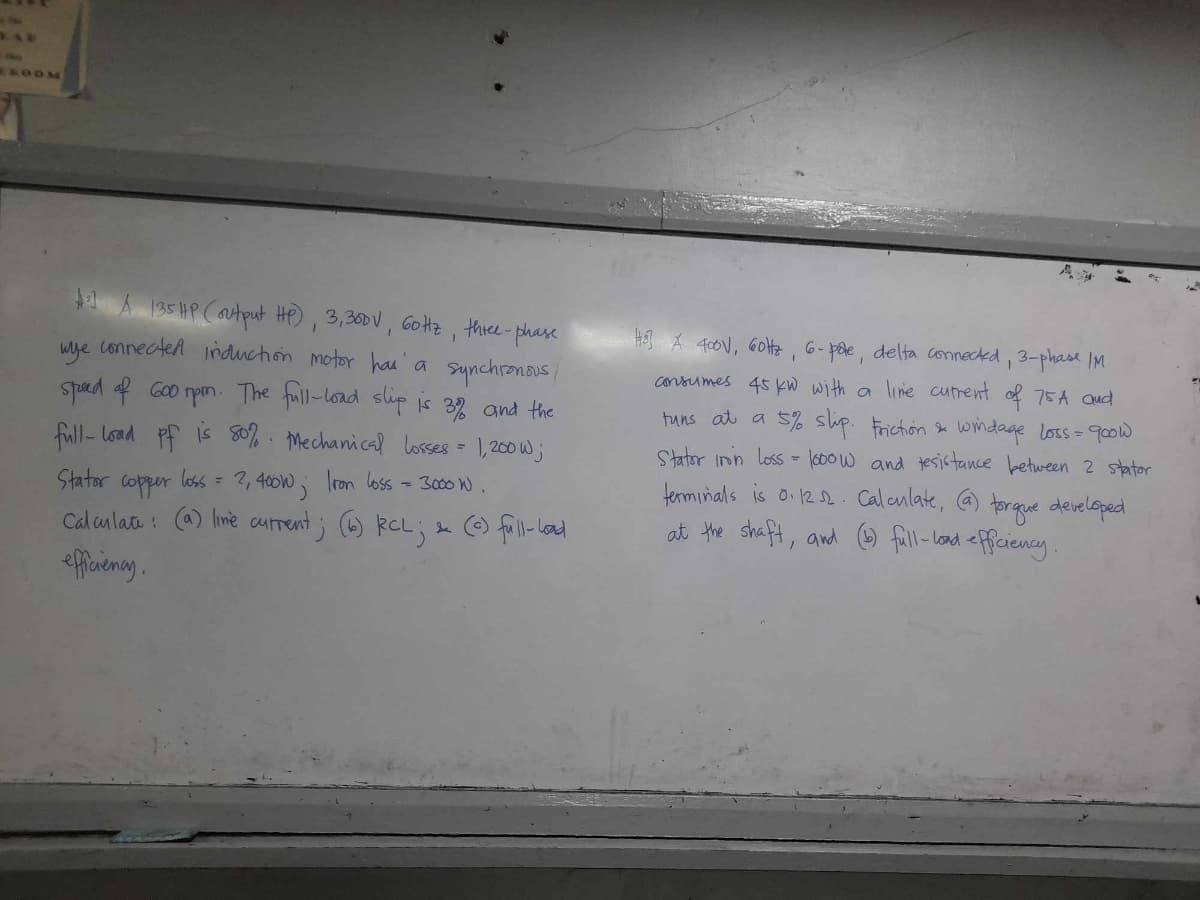 EROOM
A 135 HP (output HP), 3,300V, 60Hz, three-phase
wye connected induction motor has a synchronous
speed of 600 rpm. The full-load slip is 3% and the
full-load pf is 80%. Mechanical losses = 1,200 W;
Stator copper loss = 2,400W; Iron loss = 3000 W.
Calculate: (a) line current; (b) RCL; & (c) full-load
efficiency.
A 400V, 60Hz, 6-pole, delta connected, 3-phase IM
consumes 45 kW with a line current of 75A and
runs at a 5% slip. Friction & windage loss = 900W
Stator iron loss = 1600W and resistance between 2 stator
terminals is 0.12 Ω. Calculate, (a) torque developed
at the shaft, and (b) full-load efficiency.